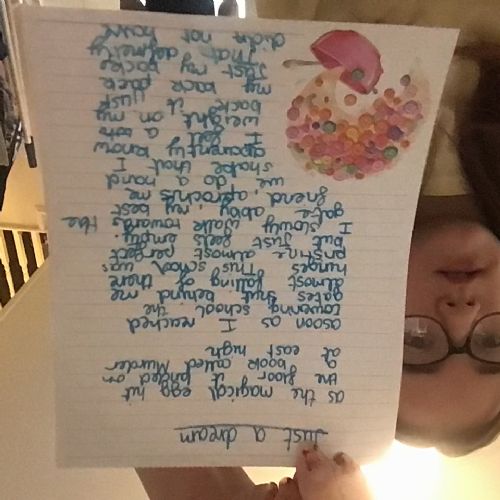 Just a dream
as the magical egg hit
the floor it landed on
a book called Murder
at east high
asoon as I reached
towering school the
gates shut behind me
almost falling of there
hinges This school was
pristine almost perfect
but just feels empty.
I slowly walk towards the
gate abby, my best
friend, aprochts me
we do a hand
shake that I
apparently know
I felt a ton
weight on my
back it luck
my back peck
Just my backe
that definetly
didn't not have